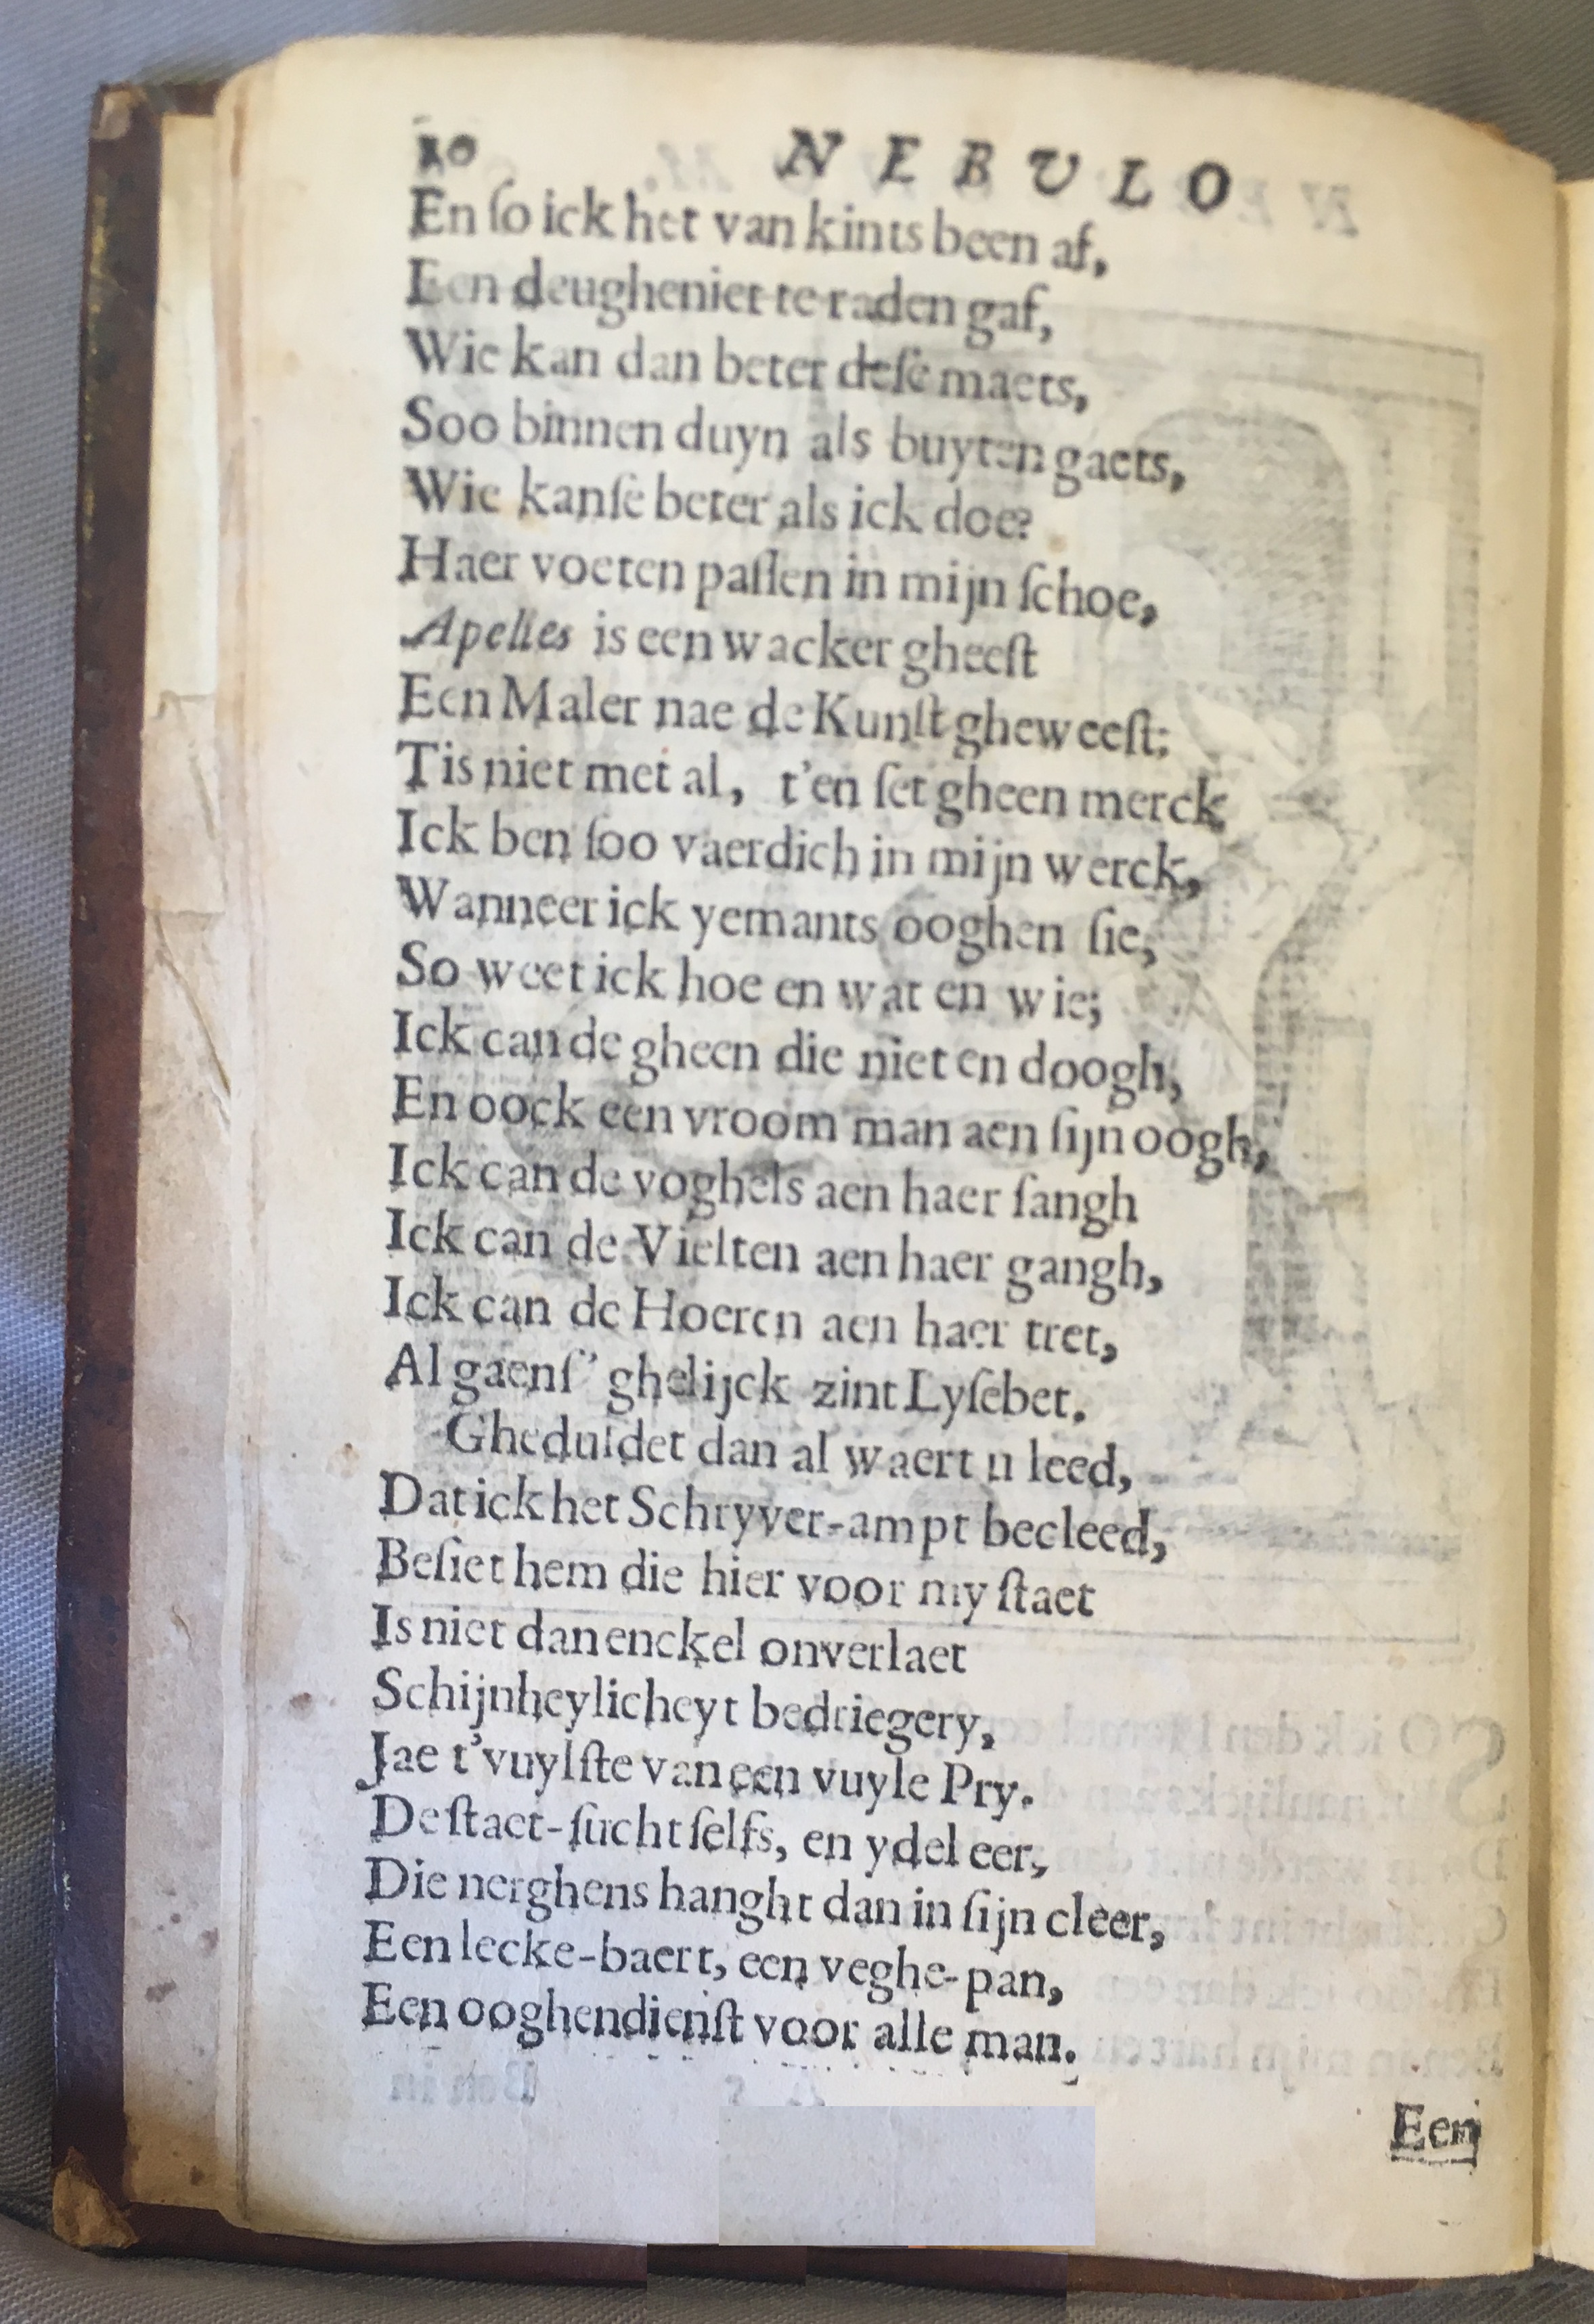 10 NEBULO
En ſo ick het van kints been af,
Een deugheniet te raden gaf,
Wie kan dan beter deſe maets,
Soo binnen duyn als buyten gaets,
Wie kanſe beter als ick doe?
Haer voeten paſſen in mijn ſchoe,
Apelles is een wacker gheeſt
Een Maler nae de Kunſt gheweeſt:
Tis niet met al, t'en ſet gheen merck
Ick ben ſoo vaerdich in mijn werck,
Wanneer ick yemants ooghen ſie,
So weet ick hoe en wat en wie;
Ick can de gheen die niet en doogh,
En oock een vroom man aen ſijn oogh,
Ick can de voghels aen haer ſangh
Ick can de Vielten aen haer gangh,
Ick can de Hoeren aen haer tret,
Al gaenſ' ghelijck zint Lyſebet.
Gheduldet dan al waert u leed,
Dat ick het Schryver-ampt becleed,
Beſiet hem die hier voor my ſtaet
Is niet dan enckel onverlaet
Schijnheylicheyt bedriegery,
Jae t'vuylſte van een vuyle Pry.
De ſtaet-ſucht ſelfs, en ydel eer,
Die nerghens hanght dan in ſijn cleer,
Een lecke-baert, een veghe-pan,
Een ooghendienſt voor alle man.
Een